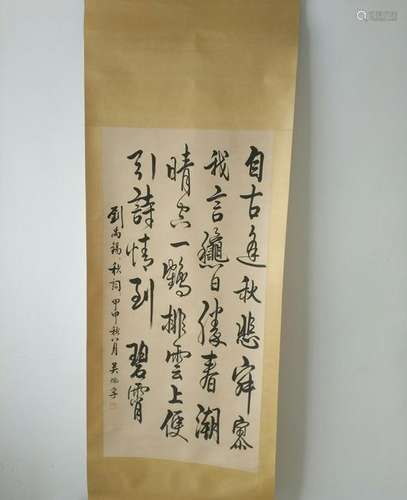 自古逢秋悲寂寥
我言龝日勝春潮
晴空一鶴排雲上便
引詩情到碧霄
劉禹錫秋詞 甲申秋八月 吴